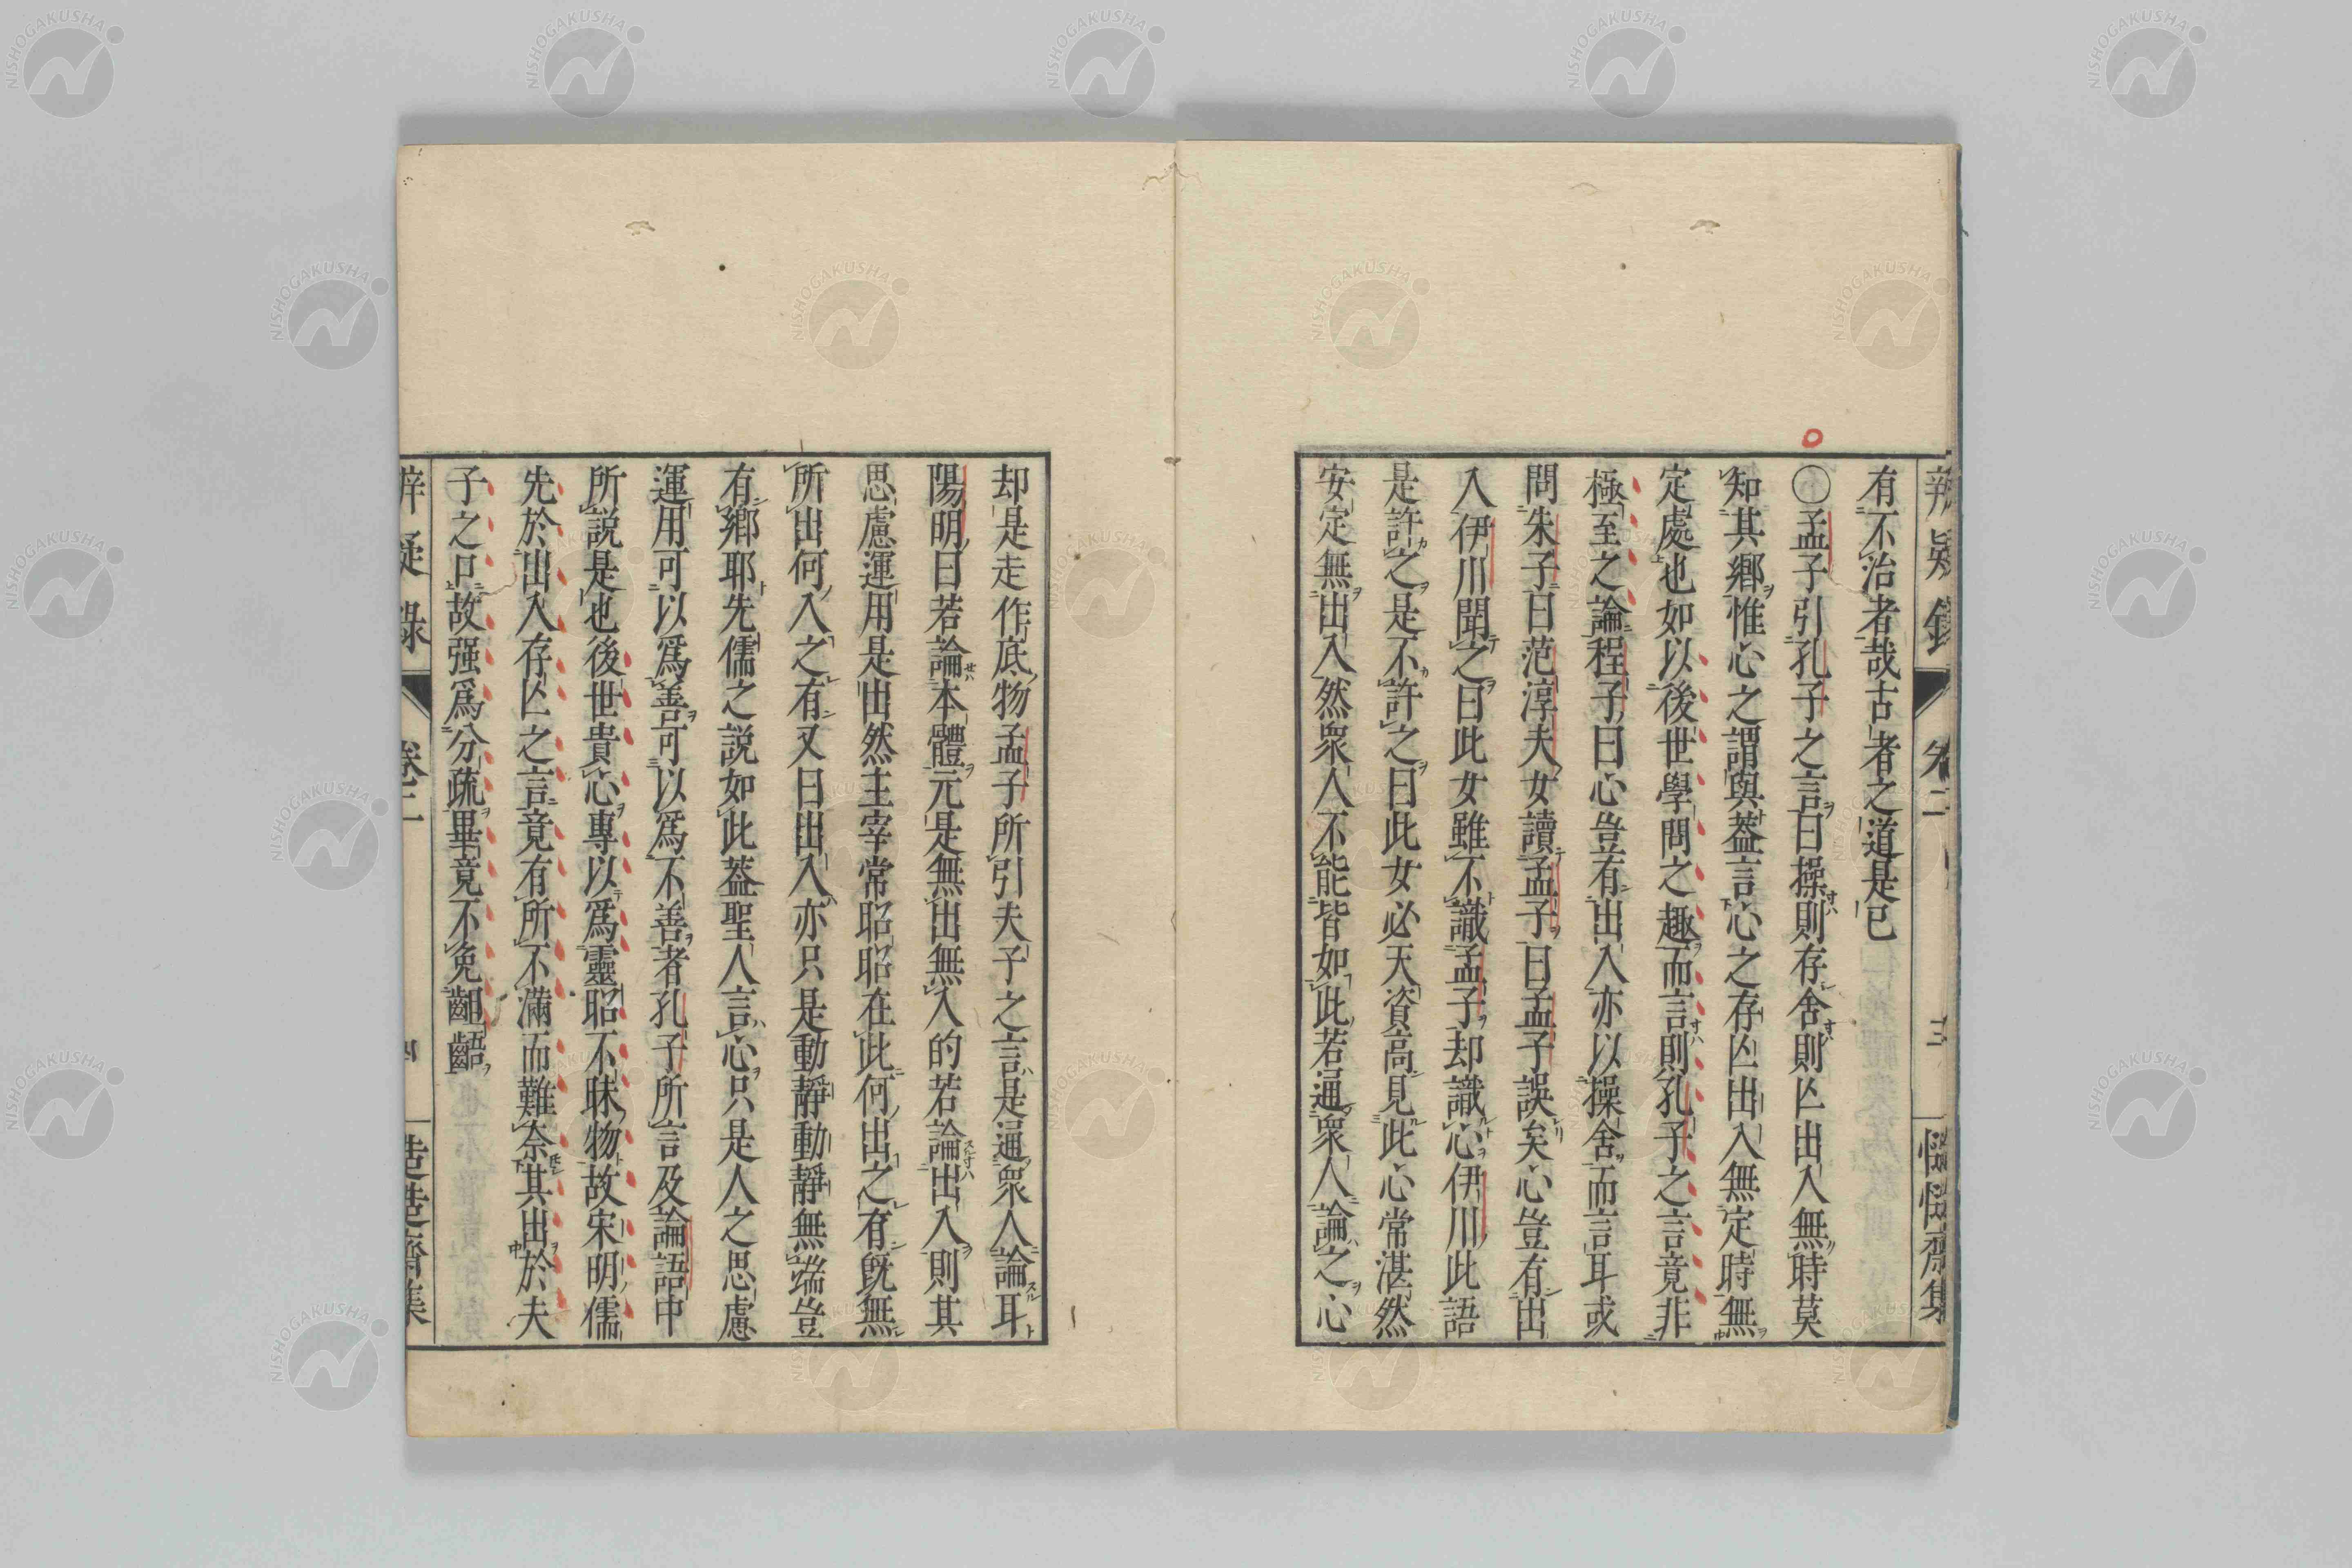 有不治者哉古者之道是已
〇孟子引孔子之言曰操則存舍則亾出入無時莫
知其鄉惟心之謂與葢言心之存亾出入無定時無
定處也如以後世學問之趣而言則孔子之言竟非
極至之論程子曰心豈有出入亦以操舍而言耳或
問朱子曰范淳夫女讀孟子曰孟子誤矣心豈有出
入伊川聞之曰此女雖不識孟子却識心伊川此語
是許之是不許之曰此女必天資高見此心常湛然
安定無出入然衆人不能皆如此若通衆人論之心
却是走作底物孟子所引夫子之言是通衆人論耳
陽明曰若論本體元是無出無入的若論出入則其
思慮運用是出然主宰常昭昭在此何出之有既無
所出何入之有又曰出入亦只是動靜動靜無端豈
有鄉耶先儒之説如此葢聖人言心只是人之思慮
運用可以爲善可以爲不善者孔子所言及論語中
所説是也後世貴心專以爲靈昭不昧物故宋明儒
先於出入存亾之言竟有所不滿而難奈其出於夫
子之口故强爲分疏畢竟不免齟齬
辨疑錄 卷二 四
NISHOGAKUSHA